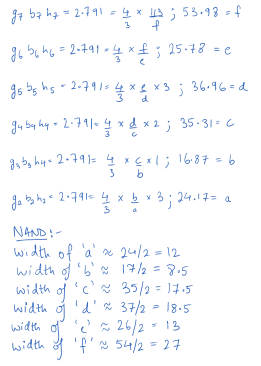 g7 b7 h7 = 2.791 = 4/3 × 113/f ; 53.98 = f
g6 b6 h6 = 2.791 = 4/3 × f/e ; 25.78 = e
g5 b5 h5 = 2.791 = 4/3 × e/d × 3 ; 36.96 = d
g4 b4 h4 = 2.791 = 4/3 × d/c × 2 ; 35.31 = c
g3 b3 h4 = 2.791 = 4/3 × c/b × 1 ; 16.87 = b
g2 b2 h2 = 2.791 = 4/3 × b/a × 3 ; 24.17 = a
NAND :-
width of 'a' ≈ 24/2 = 12
width of 'b' ≈ 17/2 = 8.5
width of 'c' ≈ 35/2 = 17.5
width of 'd' ≈ 37/2 = 18.5
width of 'e' ≈ 26/2 = 13
width of 'f' ≈ 54/2 = 27